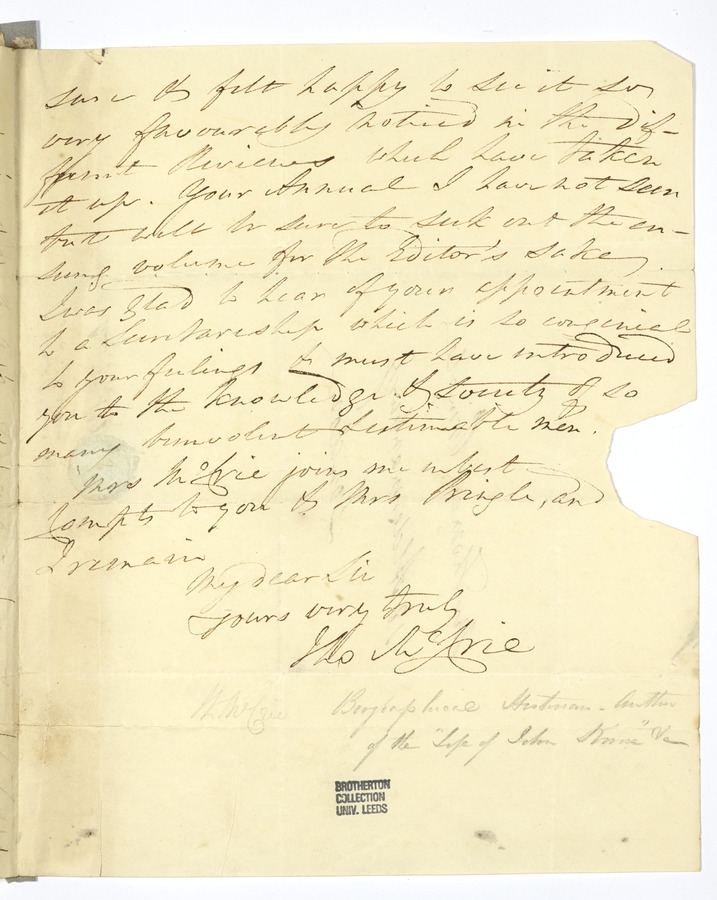 sure & felt happy to see it so
very favourably noticed in the dif-
ferent Reviews which have taken
it up. Your Annual I have not seen
but will be sure to seek out the en-
suing volume for the Editor's sake.
I was glad to hear of your appointment
to a Secretaryship which is so congenial
to your feelings & must have introduced
you to the knowledge & society of so
many benevolent & estimable men.
Mrs McCrie joins me in best
Compts to you & Mrs Pringle, and
I remain
My dear Sir
yours very truly
Tho McCrie
McCrie Biographical Historian - Author
of the "Life of John Knox" &c
BROTHERTON
COLLECTION
UNIV. LEEDS